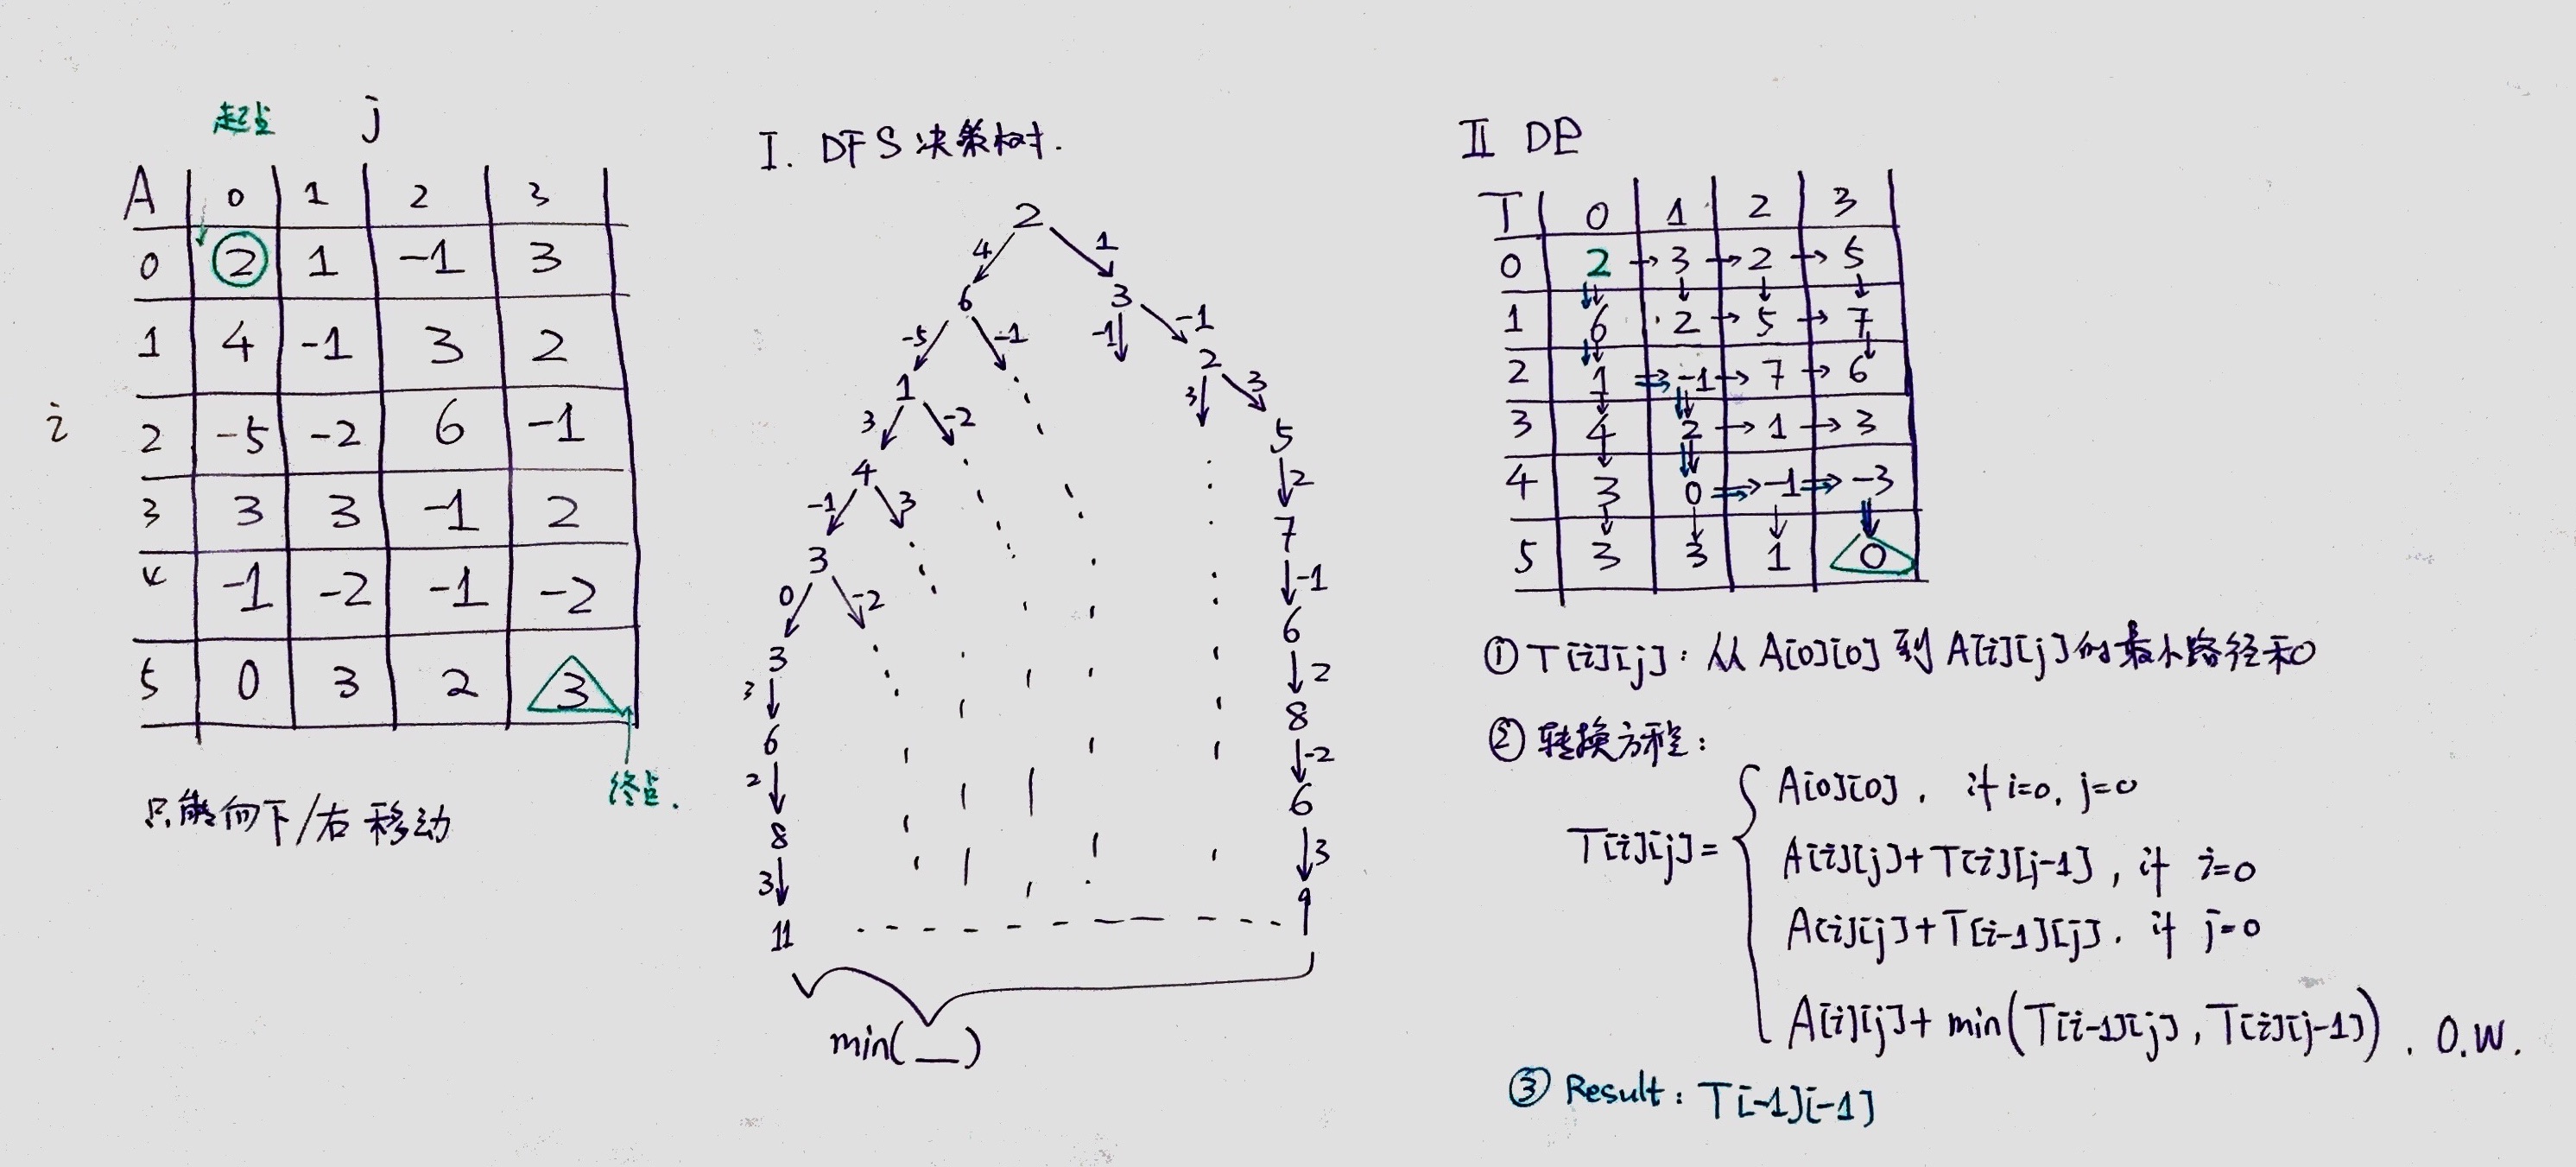 起点 j
A 0 1 2 3
0 2 1 -1 3
1 4 -1 3 2
i
2 -5 -2 6 -1
3 3 3 -1 2
4 -1 -2 -1 -2
5 0 3 2 3
终点.
只能向下/右移动
I. DFS决策树.
2
4 1
6 3
-5 -1 -1 -1
1 2
3 -2 3 3
4 5
-1 3 2
3 7
0 -2 -1
3 6
3 2
6 8
2 -2
8 6
3 3
11 9
min(__)
II DP
T 0 1 2 3
0 2 → 3 → 2 → 5
1 6 2 → 5 → 7
2 1 ⇒ -1 → 7 → 6
3 4 2 → 1 → 3
4 3 0 ⇒ -1 ⇒ -3
5 3 3 1 0
① T[i][j]: 从 A[0][0] 到 A[i][j] 的最小路径和
② 转换方程:
T[i][j]=
A[0][0], if i=0, j=0
A[i][j]+T[i][j-1], if i=0
A[i][j]+T[i-1][j]. if j=0
A[i][j]+ min(T[i-1][j], T[i][j-1]). O.W.
③ Result: T[-1][-1]